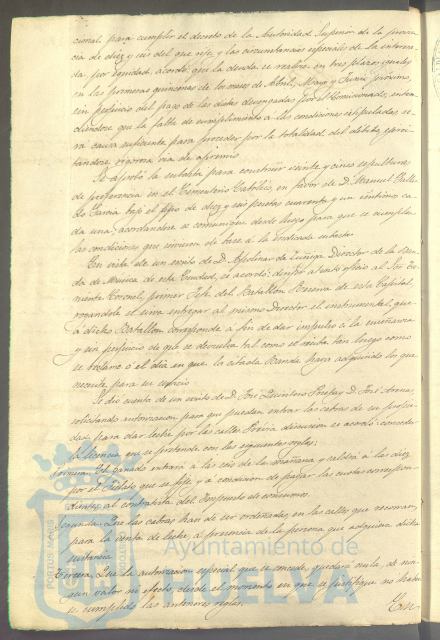 cional, para cumplir el decreto de la Autoridad Superior de la provin
cia de diez y seis del que rije, y las circunstancias especiales de la interesa
da por equidad, acordó que la deuda se realice en tres plazos iguales
en las primeras quincenas de los meses de Abril, Mayo y Junio próximo,
sin perjuicio del pago de las dietas devengadas por el Comisionado, enten
diéndose que la falta de cumplimiento a las condiciones estipuladas, se
rá causa suficiente para proceder por la totalidad del débito, ejerci
tándose rigorosa vía de apremio
Se aprobó la subasta para construir veinte y cinco sepulturas
de preferencia en el Cementerio Católico, en favor de D. Manuel
García bajo el tipo de diez y seis pesetas cuarenta y un céntimos ca
da una; acordándose se comunique desde luego para que se cumplan
las condiciones que sirvieron de base a la
En vista de un escrito de D. Apolinar de Zuñiga Director de la Ban
da de Música de esta Ciudad, se acordó: dirijir atento oficio al Sor. Te
niente Coronel, primer Jefe del Batallón Reserva de esta Capital,
rogándole se sirva entregar al mismo Director el instrumental, que
a dicho Batallón corresponde a fin de dar impulso a la enseñanza
y sin perjuicio de que se devuelva tal como se reciba tan luego como
se reclame o el día en que la citada Banda haya adquirido los que
necesite para su
Se dió cuenta de un escrito de D. José Quintero y D. José Arenas,
solicitando autorización para que puedan entrar las cabras de su propie
dad para dar leche por las calles. Previa discusión se acordó: conceder
la licencia que se pretende con las siguientes reglas:
Primera. El ganado entrará a las seis de la mañana y saldrá a las diez
por el que se fije, y a condición de pagar las cuotas correspon
dientes al contratista del Impuesto de consumos.
Segunda. Que las cabras han de ser ordeñadas, en las calles que recorran,
para la venta de leche, a presencia de la persona que adquiera dicha
sustancia
Tercera. Que la autorización especial que se concede, quedará nula, de nin
gún valor ni efecto, desde el momento en que se justifique no haber
se cumplido las anteriores reglas.
Ayuntamiento de
HUELVA